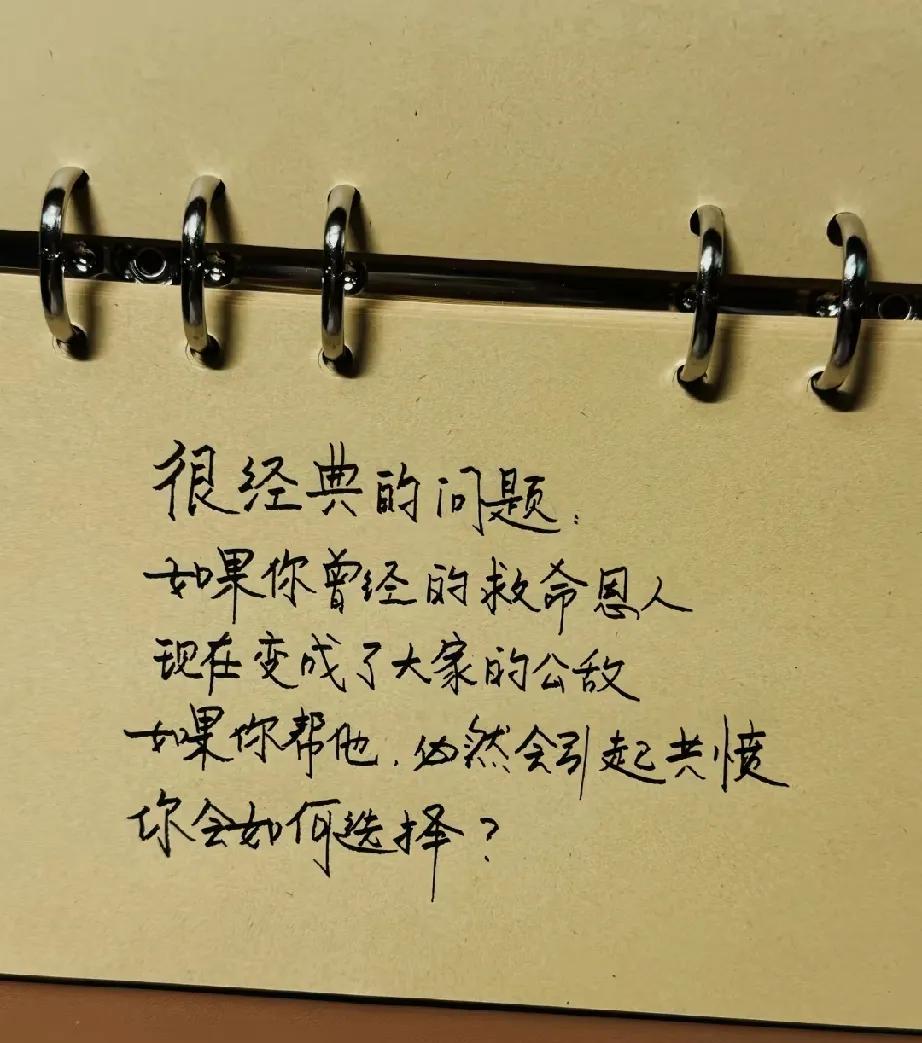 很经典的问题:
如果你曾经的救命恩人
现在变成了大家的公敌
如果你帮他,必然会引起共愤
你会如何选择?